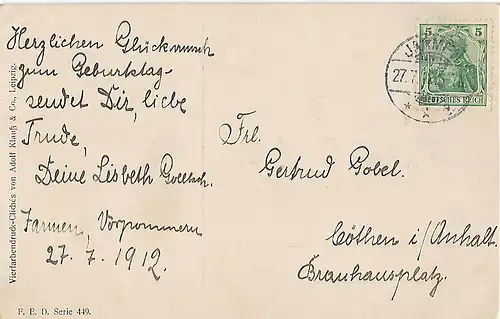 Herzlichen Glückwunsch
zum Geburtstag
sendet Dir, liebe
Trude,
Deine Lisbeth
Jarmen, Vorpommern
27. 7. 1912.
Frl.
Gertrud Gobel.
Cöthen i/Anhalt.
Brauhausplatz.
5 5
DEUTSCHES REICH
JARMEN
27.7.
Vierfarbendruck-Clichés von Adolf Klauß & Co., Leipzig.
F. E. D. Serie 449.